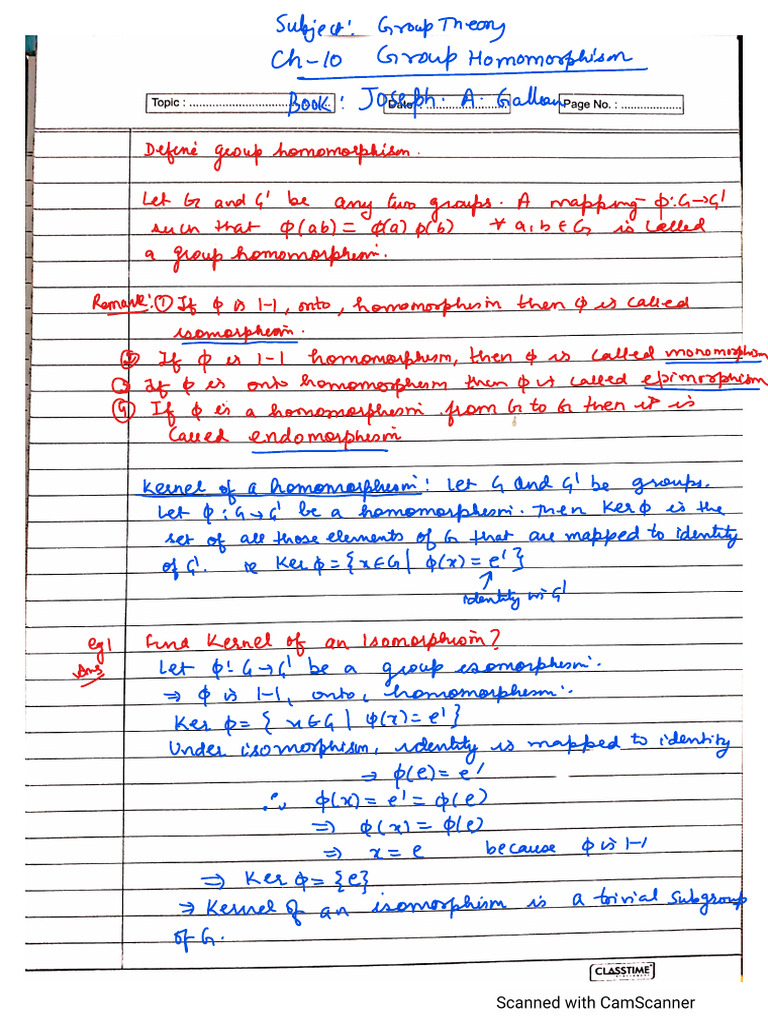 Subject: Group Theory
Ch-10 Group Homomorphism
Topic : ........................................ Book: Joseph. A. Gallian Page No. : ....................
Define group homomorphism.
Let G and G' be any two groups. A mapping ϕ:G→G'
such that ϕ(ab) = ϕ(a) ϕ(b) ∀ a,b ∈ G is called
a group homomorphism.
Remark: ① If ϕ is 1-1, onto, homomorphism then ϕ is called
isomorphism.
② If ϕ is 1-1 homomorphism, then ϕ is called monomorphism
③ If ϕ is onto homomorphism then ϕ is called epimorphism
④ If ϕ is a homomorphism from G to G then it is
called endomorphism
Kernel of a homomorphism: Let G and G' be groups.
Let ϕ: G→G' be a homomorphism. Then Ker ϕ is the
set of all those elements of G that are mapped to identity
of G'. ie Ker ϕ = {x∈G | ϕ(x) = e'}
↑
identity in G'
eg1 Find Kernel of an Isomorphism?
Ans Let ϕ: G→G' be a group isomorphism.
⇒ ϕ is 1-1, onto, homomorphism.
Ker ϕ = { x∈G | ϕ(x) = e' }
Under isomorphism, identity is mapped to identity
⇒ ϕ(e) = e'
∴ ϕ(x) = e' = ϕ(e)
⇒ ϕ(x) = ϕ(e)
⇒ x = e because ϕ is 1-1
⇒ Ker ϕ = {e}
⇒ Kernel of an isomorphism is a trivial subgroup
of G.
CLASSTIME
Scanned with CamScanner